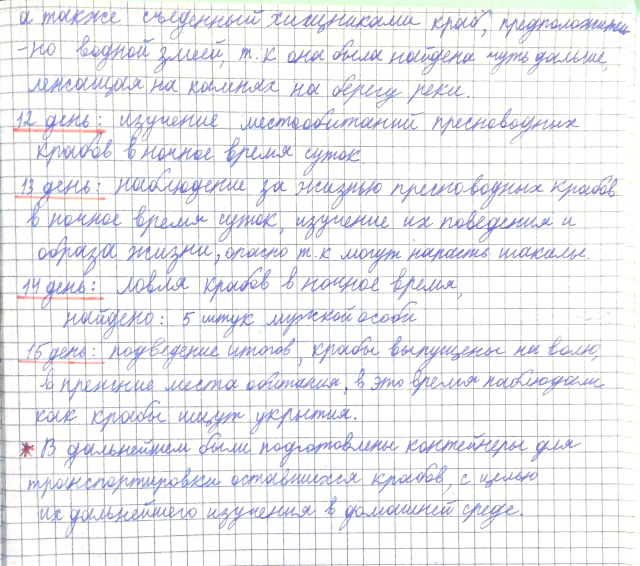 а также съеденный хищниками краб, предположитель
-но водной змеей, т.к она была найдена чуть дальше,
лежащая на камнях на берегу реки.
12 день: изучение местообитаний пресноводных
крабов в ночное время суток
13 день: наблюдение за жизнью пресноводных крабов
в ночное время суток, изучение их поведения и
образа жизни, опасно т.к могут напасть шакалы.
14 день: ловля крабов в ночное время,
найдено: 5 штук мужской особи
15 день: подведение итогов, крабы выпущены на волю,
в прежние места обитания, в это время наблюдали
как крабы ищут укрытия.
* В дальнейшем были подготовлены контейнеры для
транспортировки оставшихся крабов, с целью
их дальнейшего изучения в домашней среде.